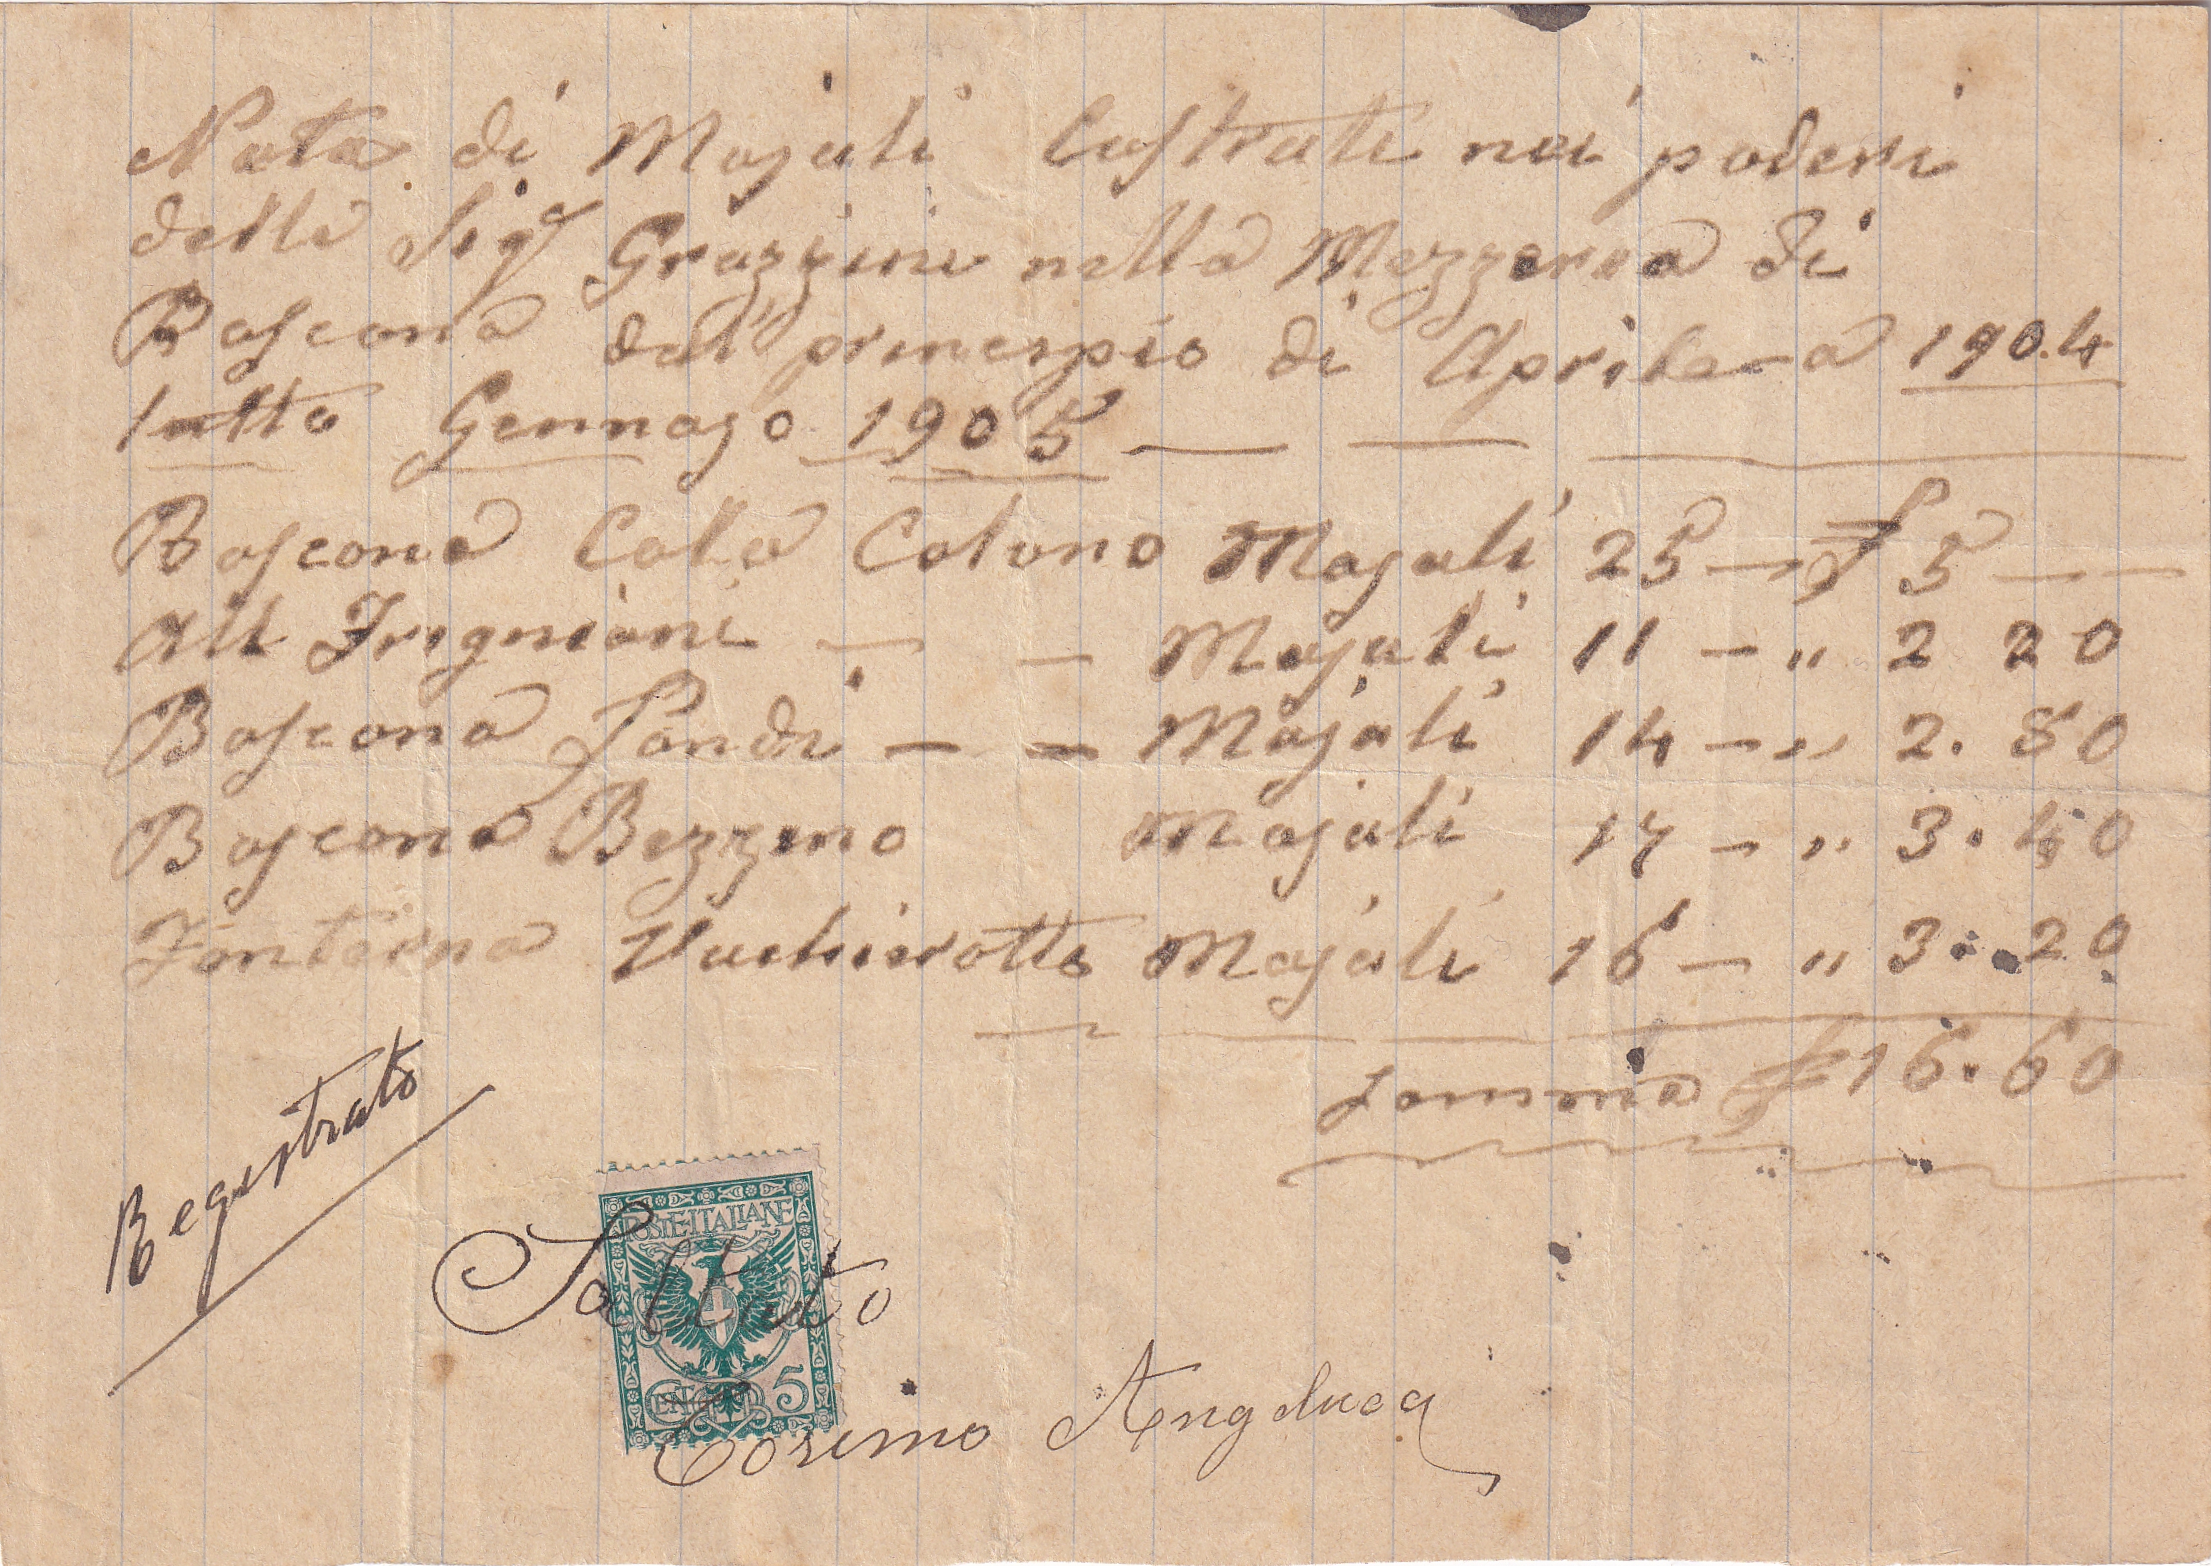 Nota di Majali Castrati nei poderi
delli Sigr Grazzini nella Mezzeria di
Boscona dal principio di Aprile a 1904
tutto Gennajo 1905
Boscona Cola Colono Majali 25 — £ 5 —
Alli Frignioni — — Majali 11 — " 2 20
Boscona Landi — — Majali 14 — " 2. 80
Boscona Bezzino Majali 17 — " 3. 40
Fonterna Majali 16 — " 3. 20
Somma £ 16. 60
Registrato
POSTE ITALIANE
Saldato
CENT 5
Cosimo Angelucci